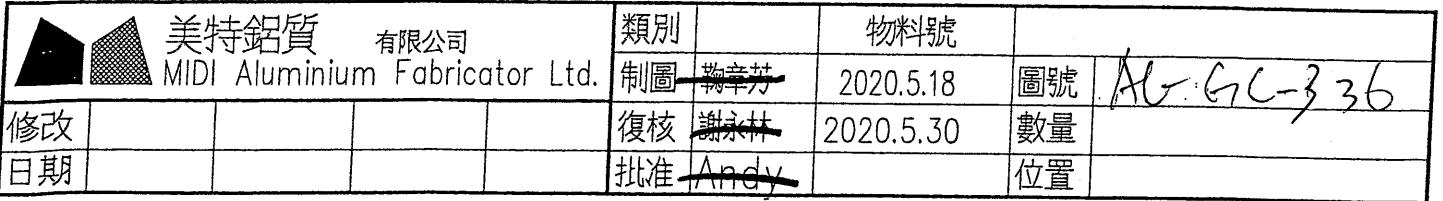 美特鋁質 有限公司
MIDI Aluminium Fabricator Ltd.
類別 物料號
制圖 2020.5.18 圖號 AG-GC-336
修改 復核 謝永林 2020.5.30 數量
日期 批准 Andy 位置